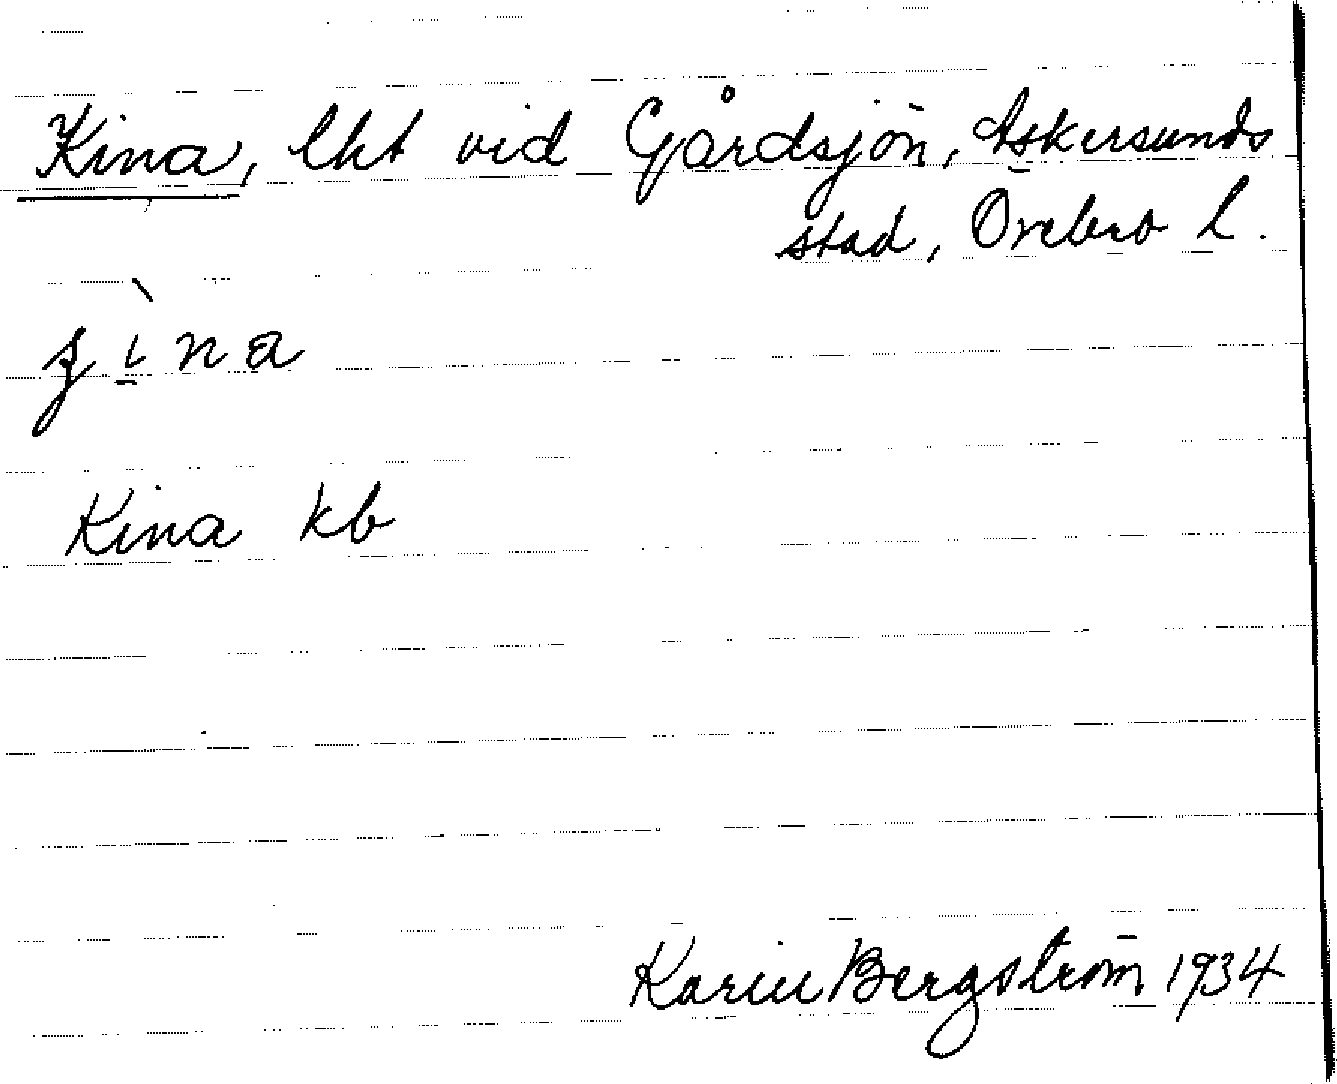 Kina, lht vid Gårdsjön, Askersunds
stad, Örebro l.
ʒı̱̀na
Kina kb
Karin Bergström 1934